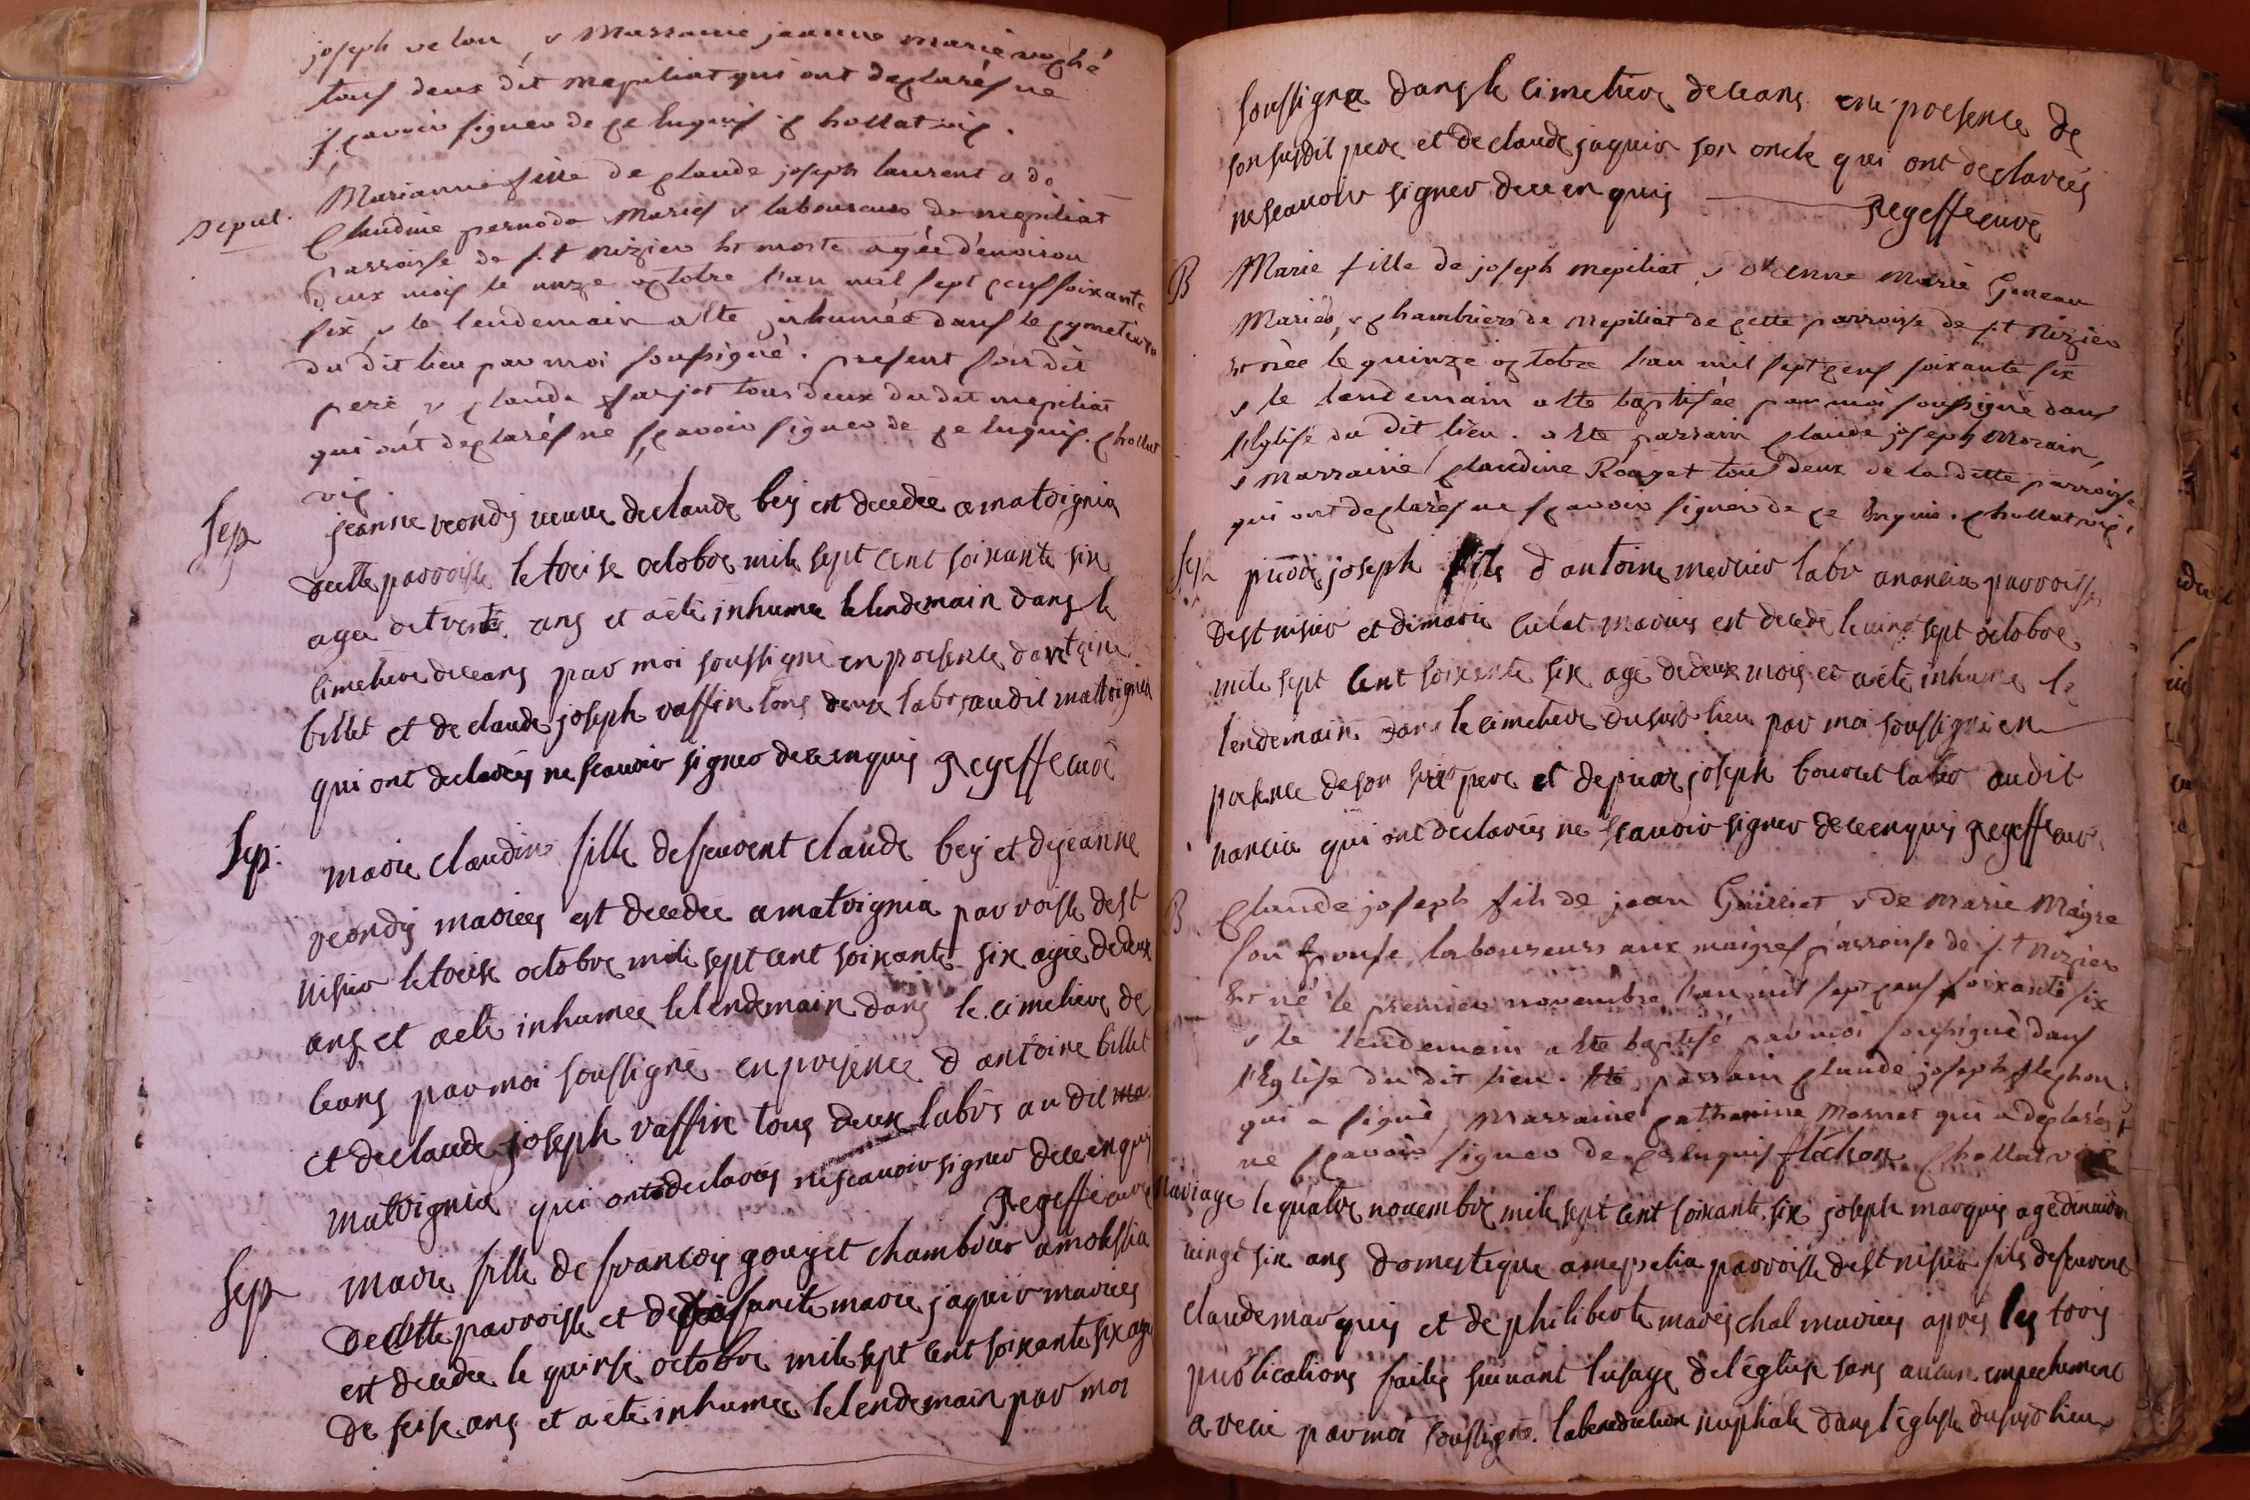 joseph velon, & Marraine jeanne marie
tous deux dit mepiliat qui ont declarés ne
sçavoir signer de ce Enquis. chollat vic.
sepul. Marianne fille de claude joseph laurent & de
Claudine pernode Mariés & laboureurs de mepiliat
parroisse de s.t nizier Est morte agée d'environ
deux mois le onze octobre l'an mil sept cens soixante
six, & le lendemain a Ete inhumée dans le cymetiere
du dit lieu par moi soussigné. present son dit
pere & claude farjot tous deux du dit mepiliat
qui ont declarés ne sçavoir signer de ce Enquis. chollat
vic.
Sep jeanne reondy veuve de claude bey est decedée a matvignia
de cette parroisse le treise octobre mile sept cent soixante six
agée de trente ans et a été inhumée le lendemain dans le
cimetiere de ceans par moi soussigné en presence d'antoine
billet et de claude joseph vaffin tous deux labrs audit matvignia
qui ont declarés ne scavoir signer de ce enquis gregeffe curé
Sep: marie claudine fille de feu vent claude bey et de jeanne
reondy mariees est decedée a matvignia parroisse de st
nisier le treise octobre mile sept cent soixante six agée de deux
ans et a été inhumée le lendemain dans le cimetiere de
ceans par moi soussigné en presence d'antoine billet
et de claude joseph vaffin tous deux labrs au dit ma
matvignia qui ont declarés ne scavoir signer de ce enquis
gregeffe curé
Sep marie fille de francois goujet chambrier a molissia
de cette parroisse et de defuncte marie jaquir mariees
est decedée le quinse octobre mile sept cent soixante six agée
de seise ans et a été inhumée le lendemain par moi
soussigné dans le cimetiere de ceans en presence de
son susdit pere et de claude jaquir son oncle qui ont declarés
ne scavoir signer de ce enquis gregeffe curé
B Marie fille de joseph mepiliat, & d'Enne Marie Geneau
Mariés, & chambriers de mepiliat de cette parroisse de s.t Nizier
Est née le quinze octobre l'an mil sept cens soixante six
& le lendemain a Ete baptisée par moi soussigné dans
l'Eglise du dit lieu. a Ete parrain claude joseph Morain,
& marraine claudine Rouget tous deux de la ditte parroisse
qui ont declarés ne sçavoir signer de ce Enquis. chollat vic.
Sep pierre joseph fils d'antoine mercier labr a nancia parroisse
de st nisier et de marie mariees est decedé le vingt sept octobre
mile sept cent soixante six agé de deux mois et a été inhumé le
lendemain dans le cimetiere du susd lieu par moi soussigné en
presence de son susd pere et de pierre joseph bouvret labr audit
nancia qui ont declarés ne scavoir signer de ce enquis gregeffe curé
B Claude joseph fils de jean Guilliet & de Marie Maigre
son Epouse, laboureurs aux maigres parroisse de s.t Nizier
Est né le premier novembre l'an mil sept cens soixante six
& le lendemain a Ete baptisé par moi soussigné dans
l'Eglise du dit lieu. Ete parrain claude joseph flechon
qui a signé, Marraine catherine Mornat qui a declarés
ne sçavoir signer de ce Enquis flechon Chollat vic
Mariage le quatre novembre mile sept cent soixante six joseph marquis agé d'environ
vingt six ans domestique a mepelia parroisse de st nisier fils de feu vent
claude marquis et de philiberte mareschal mariees apres les trois
publications faites suivant l'usage de l'église sans aucun empechement
a recu par moi soussigné la benediction nuptiale dans l'église du susd lieu